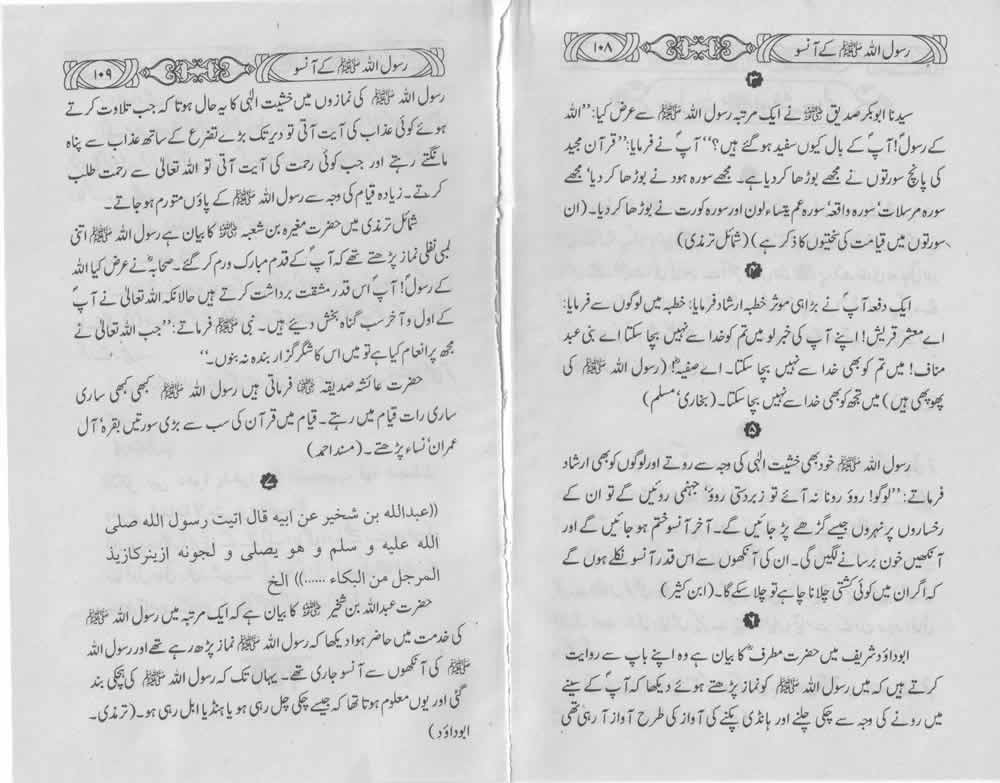 رسول اللہ ﷺ کے آنسو
۱۰۸
۳
سیدنا ابوبکر صدیق ؓ نے ایک مرتبہ رسول اللہ ﷺ سے عرض کیا: ’’اللہ
کے رسولؐ! آپؐ کے بال کیوں سفید ہو گئے ہیں؟‘‘ آپؐ نے فرمایا: ’’قرآن مجید
کی پانچ سورتوں نے مجھے بوڑھا کر دیا ہے۔ مجھے سورہ ہود نے بوڑھا کر دیا‘ مجھے
سورہ مرسلات‘ سورہ واقعہ‘ سورہ عم یتساء لون اور سورہ کورت نے بوڑھا کر دیا۔ (ان
سورتوں میں قیامت کی سختیوں کا ذکر ہے) (شمائل ترمذی)
۴
ایک دفعہ آپؐ نے بڑا ہی موثر خطبہ ارشاد فرمایا: خطبہ میں لوگوں سے فرمایا:
اے معشر قریش! اپنے آپ کی خبر لو میں تم کو خدا سے نہیں بچا سکتا اے بنی عبد
مناف! میں تم کو بھی خدا سے نہیں بچا سکتا۔ اے صفیہؓ! (رسول اللہ ﷺ کی
پھوپھی ہیں) میں تجھ کو بھی خدا سے نہیں بچا سکتا۔ (بخاری‘ مسلم)
۵
رسول اللہ ﷺ خود بھی خشیت الٰہی کی وجہ سے روتے اور لوگوں کو بھی ارشاد
فرماتے: ’’لوگو! روؤ رونا نہ آئے تو زبردستی روؤ‘ جہنمی روئیں گے تو ان کے
رخساروں پر نہروں جیسے گڑھے پڑ جائیں گے۔ آخر آنسو ختم ہو جائیں گے اور
آنکھیں خون برسانے لگیں گی۔ ان کی آنکھوں سے اس قدر آنسو نکلے ہوں گے
کہ اگر ان میں کوئی کشتی چلانا چاہے تو چلا سکے گا۔ (ابن کثیر)
۶
ابوداؤد شریف میں حضرت مطرفؓ کا بیان ہے وہ اپنے باپ سے روایت
کرتے ہیں کہ میں رسول اللہ ﷺ کو نماز پڑھتے ہوئے دیکھا کہ آپؐ کے سینے
میں رونے کی وجہ سے چکی چلنے اور ہانڈی پکنے کی آواز کی طرح آواز آ رہی تھی
رسول اللہ ﷺ کے آنسو
۱۰۹
رسول اللہ ﷺ کی نمازوں میں خشیت الٰہی کا یہ حال ہوتا کہ جب تلاوت کرتے
ہوئے کوئی عذاب کی آیت آتی تو دیر تک بڑے تضرع کے ساتھ عذاب سے پناہ
مانگتے رہتے اور جب کوئی رحمت کی آیت آتی تو اللہ تعالیٰ سے رحمت طلب
کرتے۔ زیادہ قیام کی وجہ سے رسول اللہ ﷺ کے پاؤں متورم ہو جاتے۔
شمائل ترمذی میں حضرت مغیرہ بن شعبہ ؓ کا بیان ہے رسول اللہ ﷺ اتنی
لمبی نفلی نماز پڑھتے تھے کہ آپؐ کے قدم مبارک ورم کر گئے۔ صحابہؓ نے عرض کیا اللہ
کے رسولؐ! آپؐ اس قدر مشقت برداشت کرتے ہیں حالانکہ اللہ تعالیٰ نے آپؐ
کے اول و آخر سب گناہ بخش دیئے ہیں۔ نبی ﷺ فرماتے: ’’جب اللہ تعالیٰ نے
مجھ پر انعام کیا ہے تو میں اس کا شکر گزار بندہ نہ بنوں۔‘‘
حضرت عائشہ صدیقہ ؓ فرماتی ہیں رسول اللہ ﷺ کبھی کبھی ساری
ساری رات قیام میں رہتے۔ قیام میں قرآن کی سب سے بڑی سورتیں بقرہ‘ آل
عمران‘ نساء پڑھتے۔ (مسند احمد)
۷
((عبدالله بن شخير عن ابيه قال اتيت رسول الله صلى
الله عليه و سلم و هو يصلى و لجونه ازينر كازيذ
المرجل من البكاء ......)) الخ
حضرت عبداللہ بن شخیر ؓ کا بیان ہے کہ ایک مرتبہ میں رسول اللہ ﷺ
کی خدمت میں حاضر ہوا دیکھا کہ رسول اللہ ﷺ نماز پڑھ رہے تھے اور رسول اللہ
ﷺ کی آنکھوں سے آنسو جاری تھے۔ یہاں تک کہ رسول اللہ ﷺ کی ہچکی بند
گئی اور یوں معلوم ہوتا تھا کہ جیسے چکی چل رہی ہو یا ہنڈیا ابل رہی ہو۔ (ترمذی۔
ابوداؤد)